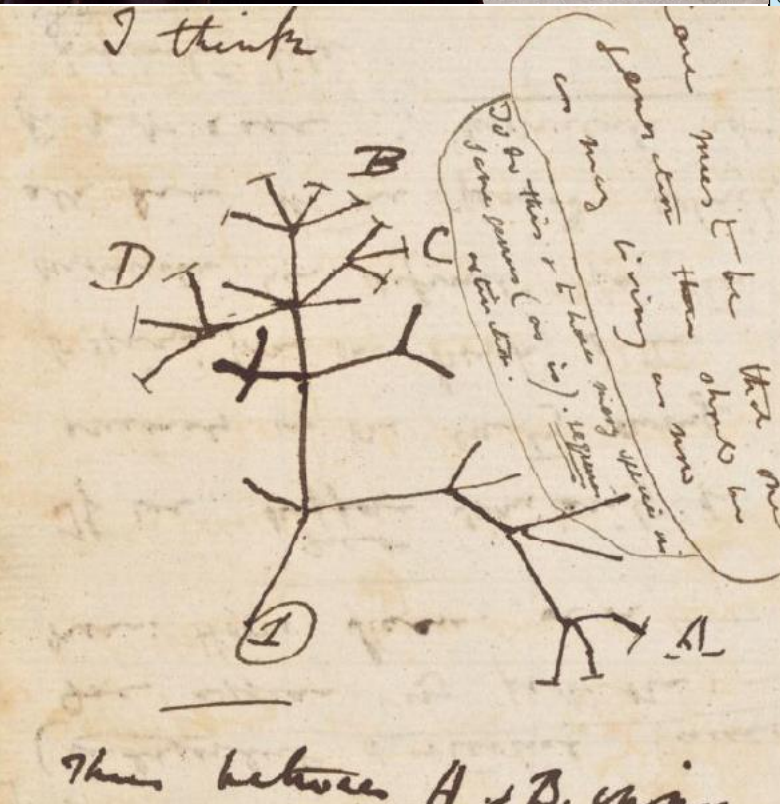 I think
B
D
C
1
A
case must be that one
generation then should be
as many living as now
To do this & to have many species in
same genus (as is). requires
extinction.
Thus between A & B.